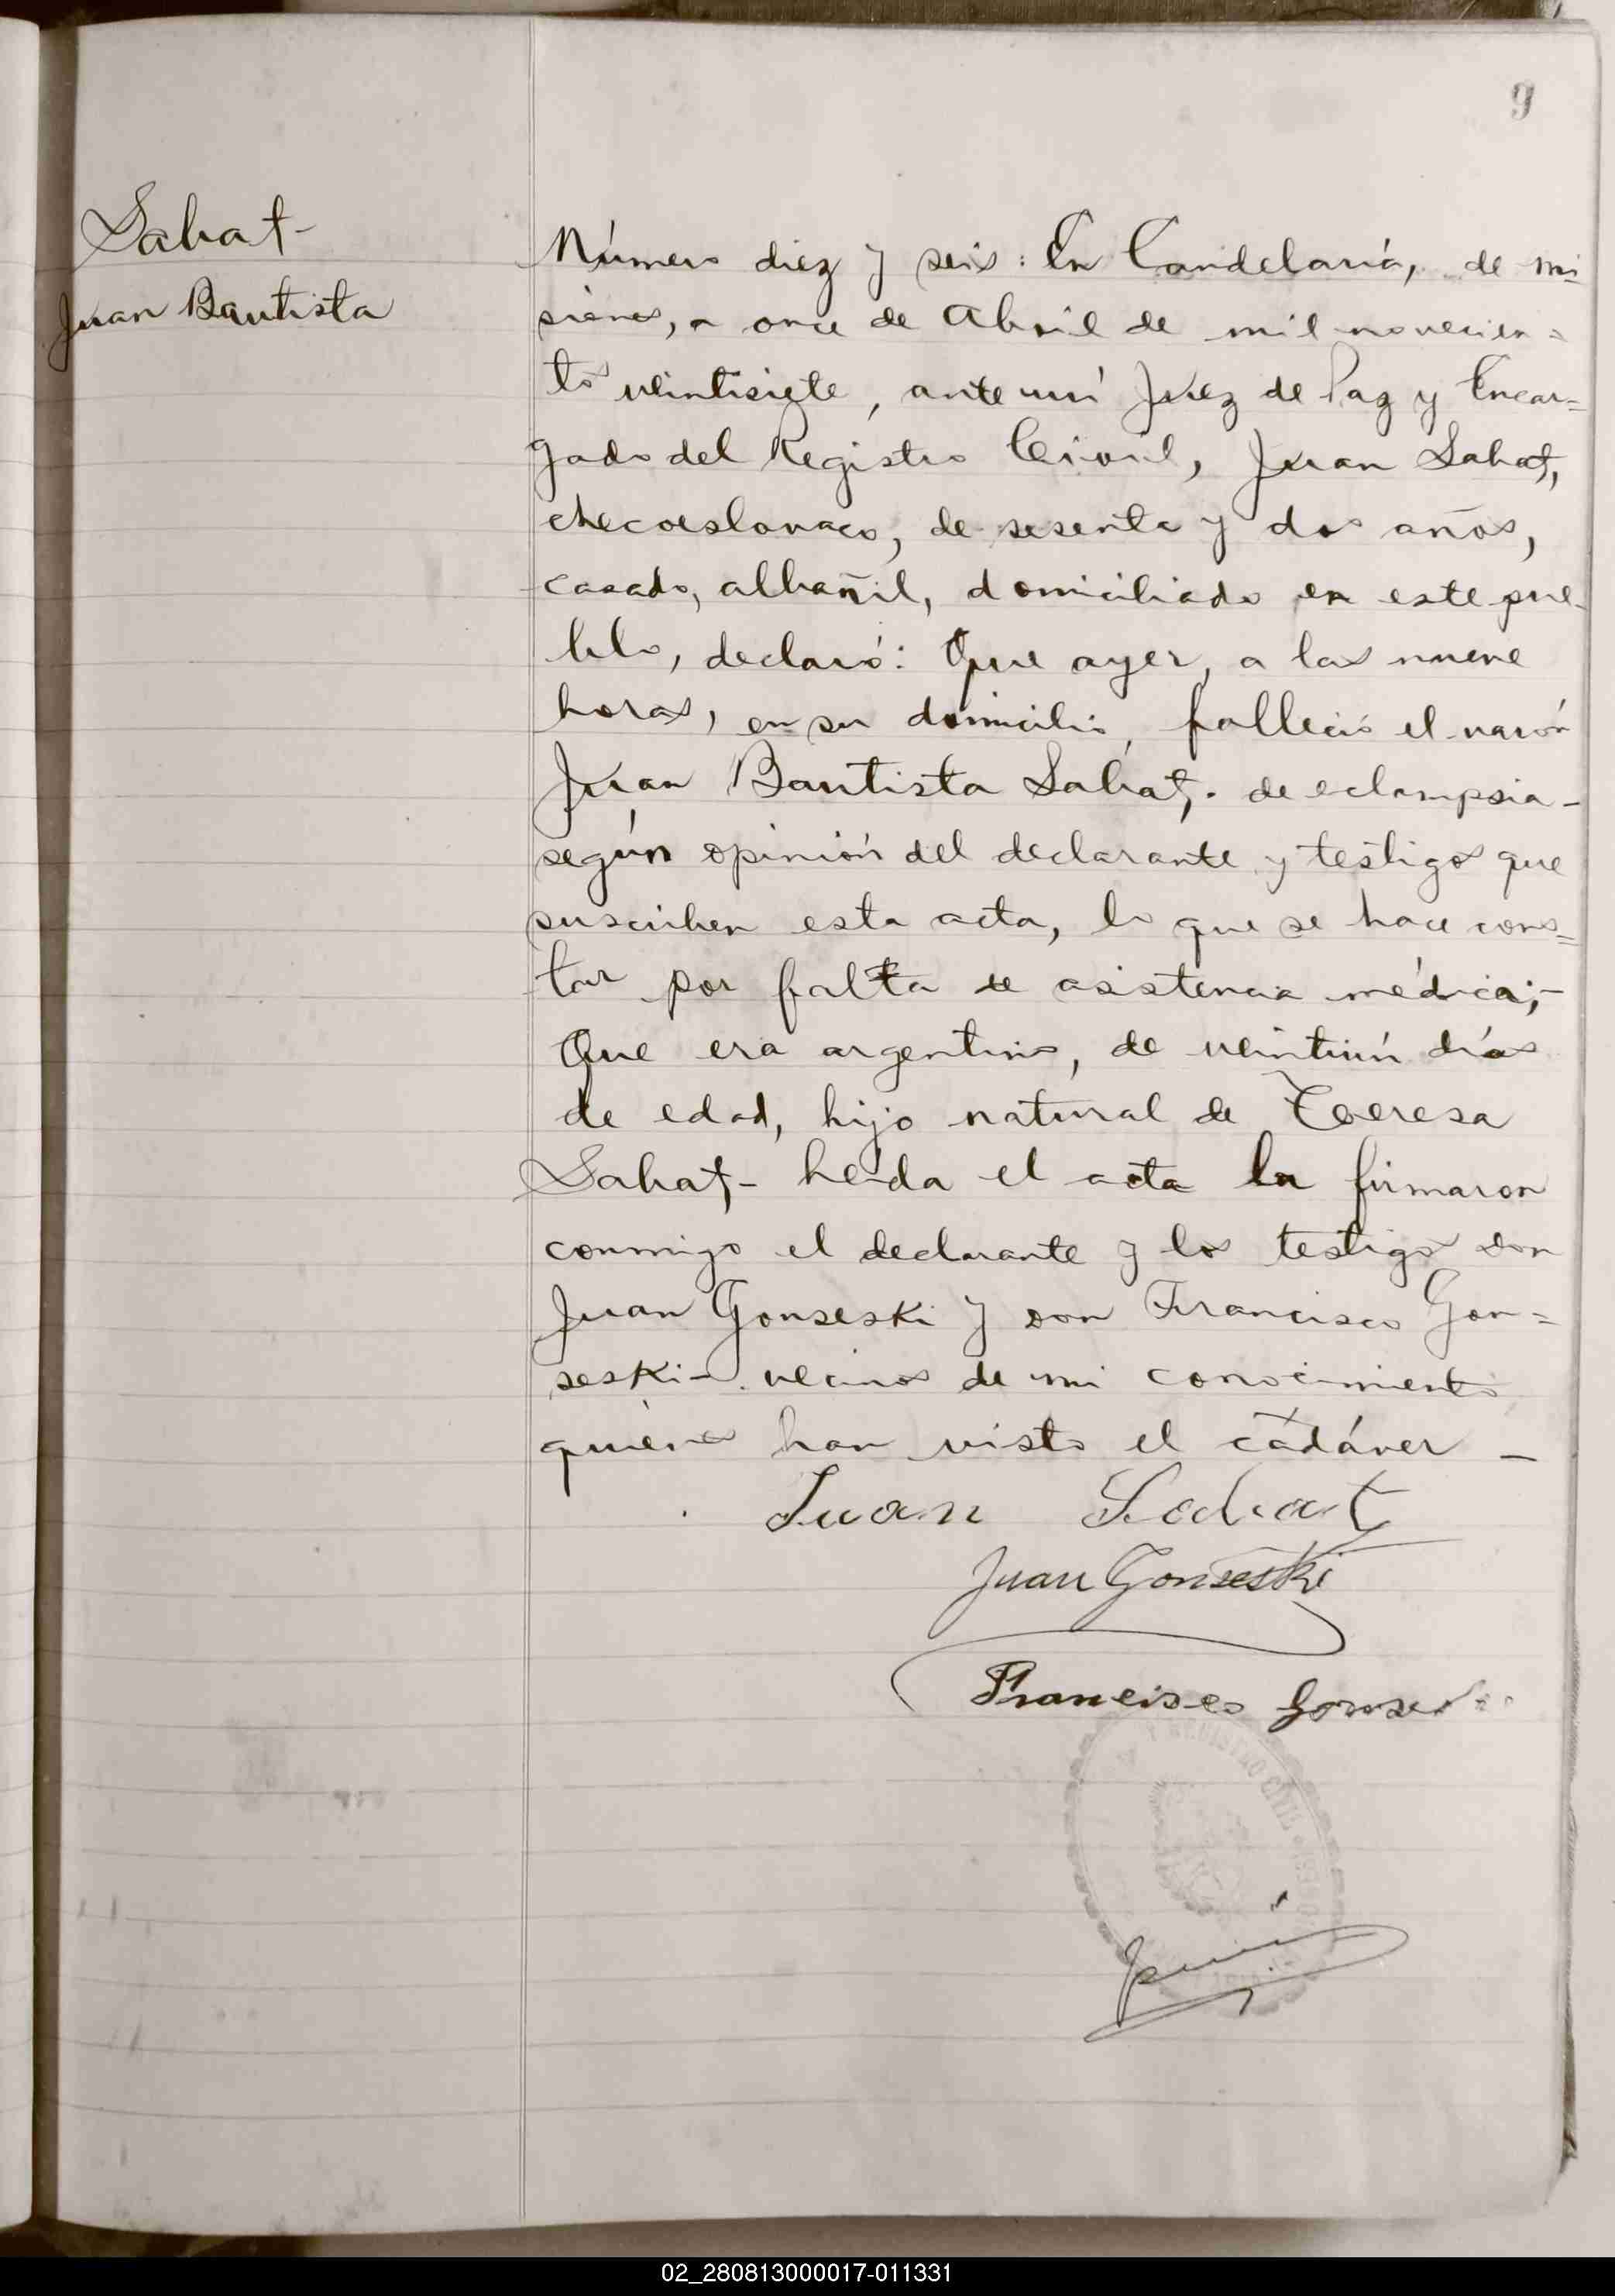 9
Sabat-
Juan Bautista
Número diez y seis: En Candelaria, de Mi-
siones, a once de Abril de mil novecien=
tos veintisiete, ante mí Juez de Paz y Encar=
gado del Registro Civil, Juan Sabat,
checoeslovaco, de sesenta y dos años,
casado, albañil, domiciliado en este pue-
blo, declaró: Que ayer, a las nueve
horas, en su domicilio, falleció el varón
Juan Bautista Sabat, de eclampsia-
según opinión del declarante y testigos que
suscriben esta acta, lo que se hace cons=
tar por falta de asistencia médica;-
Que era argentino, de veintiún días
de edad, hijo natural de Teresa
Sabat- Leída el acta la firmaron
conmigo el declarante y los testigos don
Juan Gonseski y don Francisco Gon=
seski- vecinos de mi conocimiento
quienes han visto el cadáver -
Juan
Juan Gonseski
Francisco
REGISTRO CIVIL
02_280813000017-011331